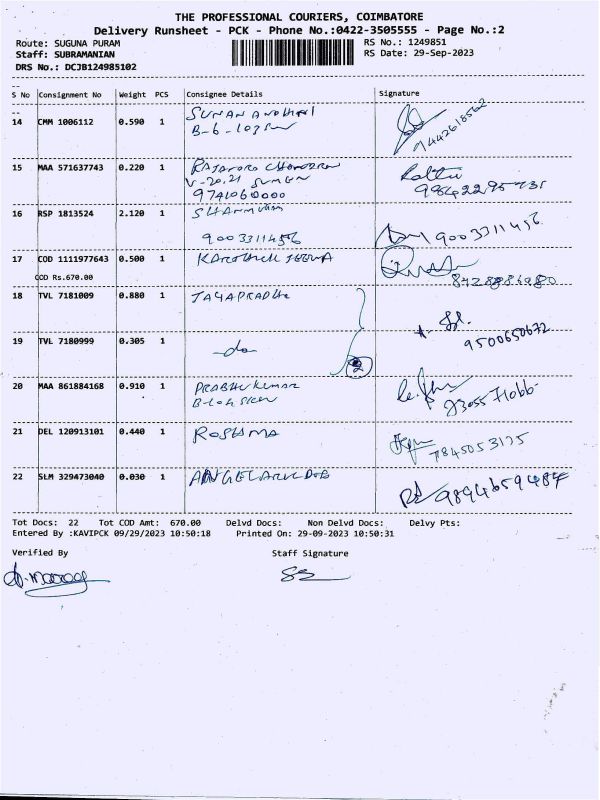 THE PROFESSIONAL COURIERS, COIMBATORE
Delivery Runsheet - PCK - Phone No.:0422-3505555 - Page No.:2
Route: SUGUNA PURAM RS No.: 1249851
Staff: SUBRAMANIAN RS Date: 29-Sep-2023
DRS No.: DCJB124985102
S No Consignment No Weight PCS Consignee Details Signature
14 CMM 1006112 0.590 1
15 MAA 571637743 0.220 1
9741060000
16 RSP 1813524 2.120 1 SHANMUGAM
9003311456 9003311456
17 COD 1111977643 0.500 1
COD Rs.670.00
18 TVL 7181009 0.880 1 JAYAPRADHA
19 TVL 7180999 0.305 1 -do- 9500650672
2
20 MAA 861884168 0.910 1 PRABHU KUMAR
21 DEL 120913101 0.440 1 ROSHMA
7845053175
22 SLM 329473040 0.030 1
9894659487
Tot Docs: 22 Tot COD Amt: 670.00 Delvd Docs: Non Delvd Docs: Delvy Pts:
Entered By :KAVIPCK 09/29/2023 10:50:18 Printed On: 29-09-2023 10:50:31
Verified By Staff Signature